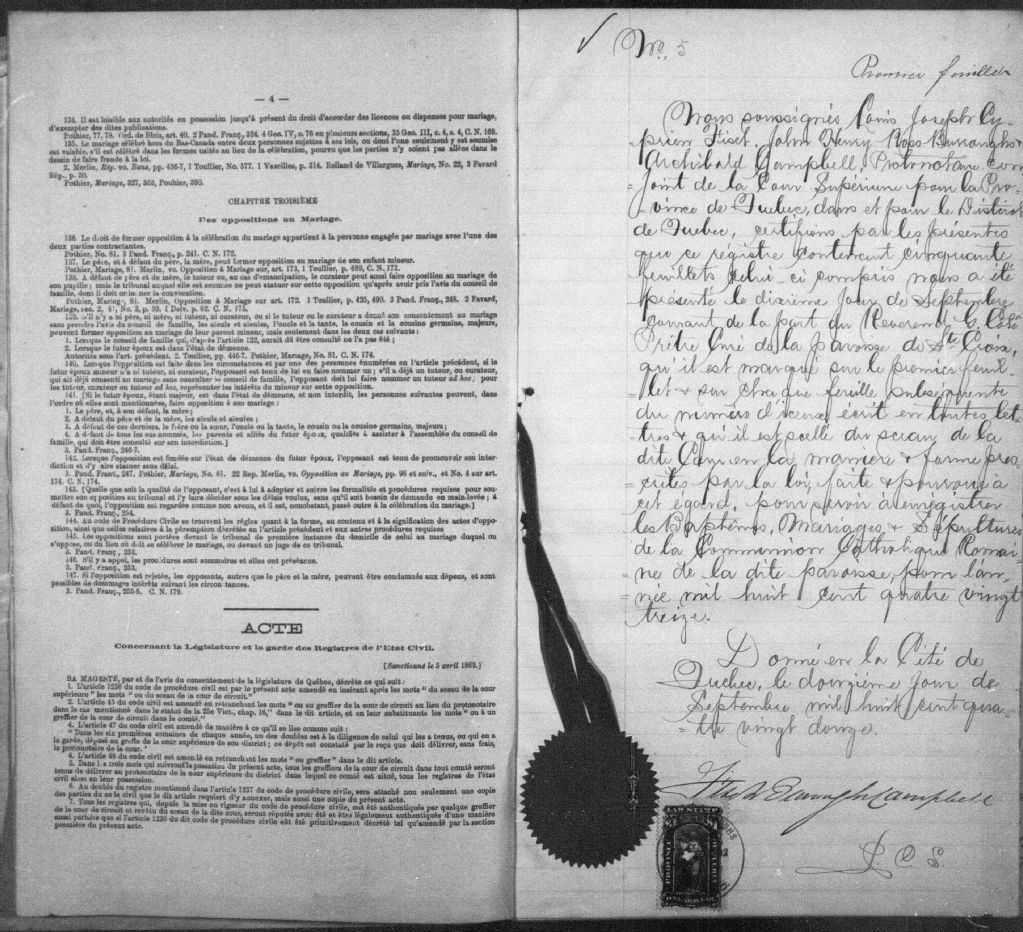 — 4 —
134. Il est loisible aux autorités en possession jusqu'à présent du droit d'accorder des licences ou dispenses pour mariage,
d'exempter des dites publications.
Pothier, 77, 78. Ord. de Blois, art. 40. 2 Pand. Franç., 324. 4 Geo. IV, c. 76 en plusieurs sections, 35 Geo. III, c. 4, s. 4, C. N. 169.
135. Le mariage célébré hors du Bas-Canada entre deux personnes sujettes à ses lois, ou dont l'une seulement y est soumise
est valable, s'il est célébré dans les formes usités au lieu de la célébration, pourvu que les parties n'y soient pas allées dans le
dessein de faire fraude à la loi.
2. Merlin, Rép. vo. Bans, pp. 436-7, 1 Toullier, No. 577. 1 Vazeilles, p. 314. Rolland de Villargues, Mariage, No. 22, 3 Favard
Rép., p. 50.
Pothier, Mariage, 327, 363, Pouhier, 390.
CHAPITRE TROISIÈME
Des oppositions au Mariage.
136. Le droit de former opposition à la célébration du mariage appartient à la personne engagée par mariage avec l'une des
deux parties contractantes.
Pothier, No. 81. 3 Pand. Franç., p. 241. C. N. 172.
137. Le père, et à défaut du père, la mère, peut former opposition au mariage de son enfant mineur.
Pothier, Mariage, 81. Merlin, vo. Opposition à Mariage sur, art. 173, 1 Toullier, p. 489, C. N. 173.
138. A défaut de père et de mère, le tuteur ou, au cas d'émancipation, le curateur peut aussi faire opposition au mariage de
son pupille; mais le tribunal auquel elle est soumise ne peut statuer sur cette opposition qu'après avoir pris l'avis du conseil de
famille, dont il doit ordonner la convocation.
Pothier, Mariage, 81. Merlin, Opposition à Mariage sur art. 172. 1 Toullier, p. 425, 490. 3 Pand. Franç., 248. 2 Favard,
Mariage, sec. 2, §1, No. 3, p. 59. 1 Delv. p. 62. C. N. 175.
139. S'il n'y a ni père, ni mère, ni tuteur, ni curateur, ou si le tuteur ou le curateur a donné son consentement au mariage
sans prendre l'avis du conseil de famille, les aïeuls et aïeules, l'oncle et la tante, le cousin et la cousine germains, majeurs,
peuvent former opposition au mariage de leur parent mineur, mais seulement dans les deux cas suivants :
1. Lorsque le conseil de famille qui, d'après l'article 122, aurait dû être consulté ne l'a pas été ;
2. Lorsque le futur époux est dans l'état de démence.
Autorités sous l'art. précédent. 2. Toullier, pp. 446-7. Pothier, Mariage, No. 81. C. N. 174.
140. Lorsque l'opposition est faite dans les circonstances et par une des personnes énumérées en l'article précédent, si le
futur époux mineur n'a ni tuteur, ni curateur, l'opposant est tenu de lui en faire nommer un ; s'il a déjà un tuteur, ou curateur,
qui ait déjà consenti au mariage sans consulter le conseil de famille, l'opposant doit lui faire nommer un tuteur ad hoc; pour
les tuteur, curateur ou tuteur ad hoc, représenter les intérêts du mineur sur cette opposition.
141. [Si le futur époux, étant majeur, est dans l'état de démence, et non interdit, les personnes suivantes peuvent, dans
l'ordre où elles sont mentionnées, faire opposition à son mariage :
1. Le père, et, à son défaut, la mère ;
2. A défaut du père et de la mère, les aïeuls et aïeules ;
3. A défaut de ces derniers, le frère ou la sœur, l'oncle ou la tante, le cousin ou la cousine germains, majeurs ;
4. A défaut de tous les sus nommés, les parents et alliés du futur époux, qualifiés à assister à l'assemblée du conseil de
famille, qui doit être consulté sur son interdiction.]
3. Pand. Franç., 246-7.
142. Lorsque l'opposition est fondée sur l'état de démence du futur époux, l'opposant est tenu de promouvoir son inter-
diction et d'y faire statuer sans délai.
3. Pand. Franç., 247. Pothier, Mariage, No. 81. 22 Rep. Merlin, vo. Opposition au Mariage, pp. 98 et suiv., et No. 4 sur art.
174. C. N. 174.
143. [Quelle que soit la qualité de l'opposant, c'est à lui à adopter et suivre les formalités et procédures requises pour sou-
mettre son opposition au tribunal et l'y faire décider sous les délais voulus, sans qu'il soit besoin de demande en main-levée ; à
défaut de quoi, l'opposition est regardée comme non avenue, et il est, nonobstant, passé outre à la célébration du mariage.]
3. Pand. Franç., 254.
144. Au code de Procédure Civile se trouvent les règles quant à la forme, au contenu et à la signification des actes d'oppo-
sition, ainsi que celles relatives à la péremption décrétée en l'article précédent et aux autres procédures requises
145. Les oppositions sont portées devant le tribunal de première instance du domicile de celui au mariage duquel on
s'oppose, ou du lieu où doit se célébrer le mariage, ou devant un juge de ce tribunal.
3. Pand. Franç., 253.
146. S'il y a appel, les procédures sont sommaires et elles ont préséance.
3. Pand. Franç., 253.
147. Si l'opposition est rejetée, les opposants, autres que le père et la mère, peuvent être condamnés aux dépens, et sont
passibles de dommages intérêts suivant les circonstances.
3. Pand. Franç., 255-6. C. N. 179.
ACTE
Concernant la Législature et la garde des Registres de l'Etat Civil.
[Sanctionné le 5 avril 1869.]
SA MAGESTÉ, par et de l'avis du consentement de la législature de Québec, décrète ce qui suit :
1. L'article 1236 du code de procédure civil est par le présent acte amendé en insérant après les mots " du sceau de la cour
supérieure " les mots " ou du sceau de la cour de circuit."
2. L'article 45 du code civil est amendé en retranchant les mots " ou au greffier de la cour de circuit au lieu du protonotaire
dans le cas mentionné dans le statut de la 25e Vict., chap. 16," dans le dit article, et en leur substituants les mots " ou à un
greffier de la cour de circuit dans le comté."
4. L'article 47 du code civil est amendé de manière à ce qu'il se lise comme suit :
" Dans les six premières semaines de chaque année, un des doubles est à la diligence de celui qui les a tenus, ou qui en a
la garde, déposé au greffe de la cour supérieure de son district ; ce dépôt est constaté par le reçu que doit délivrer, sans frais,
le protonotaire de la cour."
4. L'article 48 du code civil est amendé en retranchant les mots " ou greffier " dans le dit article.
5. Dans les trois mois qui suivront la passation du présent acte, tous les greffiers de la cour de circuit dans tout comté seront
tenus de délivrer au protonotaire de la cour supérieure du district dans lequel ce comté est situé, tous les registres de l'état
civil alors en leur possession.
6. Au double du registre mentionné dans l'article 1237 du code de procédure civile, sera attaché non seulement une copie
des parties du code civil que le dit article requiert d'y annexer, mais aussi une copie du présent acte.
7. Tous les registres qui, depuis la mise en vigueur du code de procédure civile, ont été authentiqués par quelque greffier
de la cour de circuit et revêtu du sceau de la dite cour, seront réputés avoir été et être légalement authentiqués d'une manière
aussi parfaite que si l'article 1236 du dit code de procédure civile eût été primitivement décrété tel qu'amendé par la section
première du présent acte.
No. 5
Premier feuillet
Nous soussignés Louis Joseph Cy-
prien Fiset, John Henry Ross Burroughs &
Archibald Campbell, Protonotaire con
-joint de la Cour Supérieure pour la Pro-
-vince de Québec, dans et pour le District
de Québec, certifions par les présentes
que ce régistre contenant cinquante
feuillets celui ci compris nous a été
présenté le dixième jour de Septembre
courant de la part du Révérend C. Côté
Prêtre Curé de la paroisse de Ste Croix,
qu'il est marqué sur le premier feuil-
let & sur chaque feuille subséquente
du numéro d'iceux écrit en toutes let
-tres & qu'il est scellé du sceau de la
dite Cour en la manière & forme pres
-crites par la loi, faite & pourvue à
cet égard, pour servir à enrégistrer
les Baptêmes, Mariages & Sépultures
de la Communion Catholique Romai
-ne de la dite paroisse, pour l'an-
née mil huit cent quatre vingt
treize.
Donné en la Cité de
Québec, le douzième jour de
Septembre mil huit cent qua-
-tre vingt douze.
Fiset Burroughs Campbell
P. C. S.
LAW STAMP
PROVINCE
QUEBEC
ONE DOLLAR